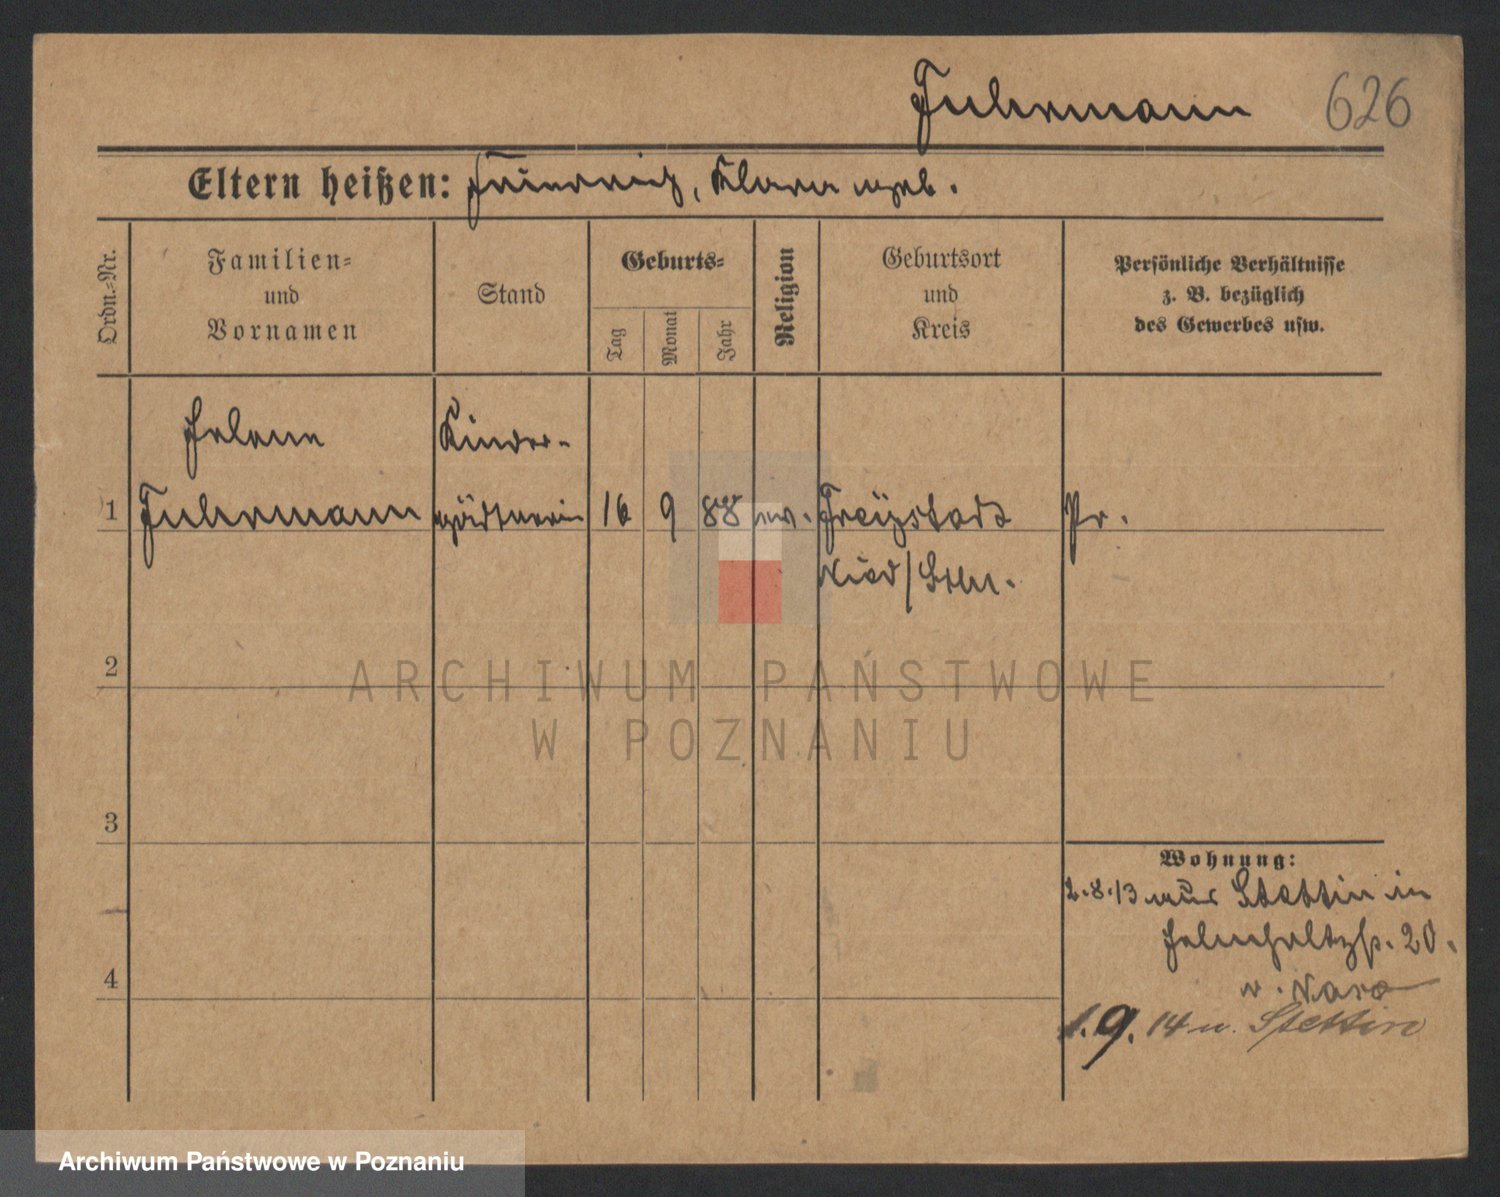 Fuhrmann
626
Eltern heißen: Friedrich, Klara geb.
Ordn.-Nr.
Familien- und Vornamen
Stand
Geburts-
Tag
Monat
Jahr
Religion
Geburtsort und Kreis
Persönliche Verhältnisse
z. B. bezüglich
des Gewerbes usw.
Helene
Kinder-
1 Fuhrmann gärtnerin 16 9 88 ev. Freistadt Pr.
2
3
4
Wohnung:
2.8.13 aus Stettin in
20.
v.
1.9.14 n. Stettin
ARCHIWUM PAŃSTWOWE
W POZNANIU
Archiwum Państwowe w Poznaniu